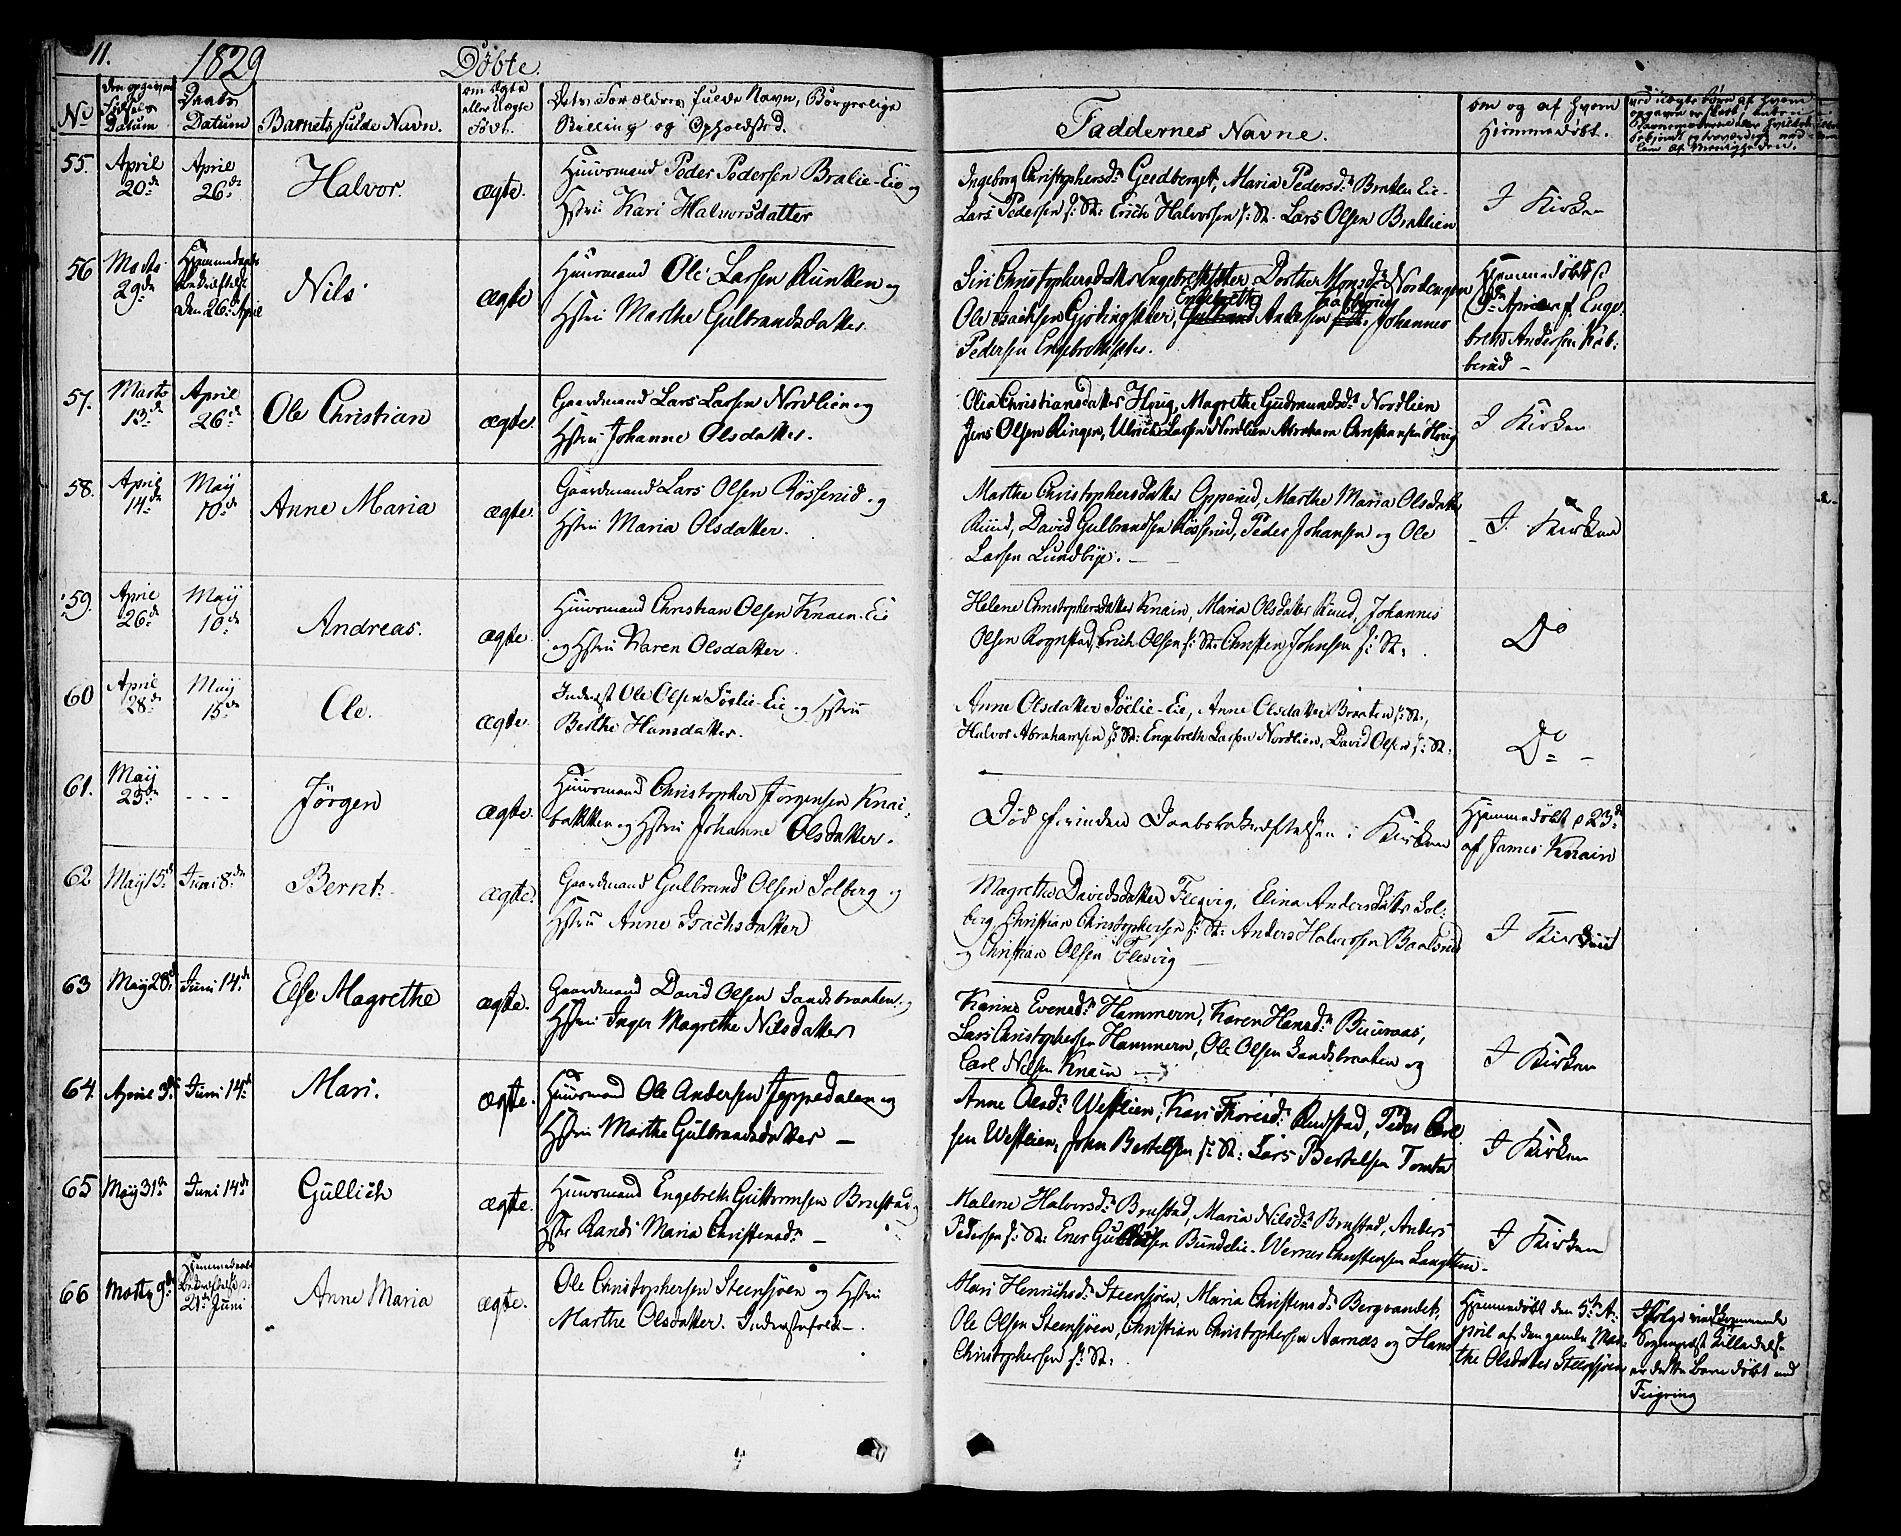 11.
1829
Döbte.
No
den opgivne Födsels Datum
Daabs Datum
Barnets fulde Navn.
om Ægte eller Uægte Födt.
Dets Forældres fulde Navn, Borgerlige
Stilling og Opholdsted.
Faddernes Navne.
om og af hvem
Hjemmedöbt.
55.
April 20de
April 26de
Halvor.
ægte.
Huusmand Peder Pedersen Bralie-Eie og
Hstru Kari Halvorsdatter
Ingeborg Christophersdr. Geedberget, Maria Pedersdr. Braten Eie
Lars Pedersen s: St: Erich Halvorsen s: St. Lars Olsen Bratlien
I Kirken
56
Marts 29de
Hjemmedaabs
Bekræftelse
den 26de April
Nils
ægte
Huusmand Ole Larsen Runken og
Hstru Marthe Gulbrandsdatter.
Siri Christophersdatter Engebretsætter, Dorthe Monsdr. Nordengen
Ole Isachsen Gjödingsæter, Engebreth Andersen Johannes
Pedersen Engebretsæter.
Hjemmedöbt
April af Enge-
breth Andersen Kab-
berud -
57.
Marts 13de
April 26de
Ole Christian
ægte.
Gaardmand Lars Larsen Nordlien og
Hstru Johanne Olsdatter.
Olia Christiansdatter Hvug, Magrethe Gudmundsdr. Nordlien
Jens Olsen Ringen, Ulrich Larsen Nordlien Abraham Christiansen Hvug
I Kirken
58.
April 14de
May 10de
Anne Maria
ægte.
Gaardmand Lars Olsen Rösserud og
Hstru Maria Olsdatter.
Marthe Christophersdatter Opperud, Marthe Maria Olsdatter
Ruud, David Gulbrandsen Rösserud, Peder Johansen og Ole
Larsen Lundbye. -
I Kirken
59.
April 26de
May 10de
Andreas.
ægte.
Huusmand Christian Olsen Knain-Eie
og Hstru Karen Olsdatter
Helene Christophersdatter Knain, Maria Olsdatter Ruud, Johannes
Olsen Rognstad, Erich Olsen s: St: Christen Johnsen s: St:
Do
60
April 28de
May 15de
Ole.
ægte.
Inderst Ole Olsen Söelie-Eie og Hstru
Berthe Hansdatter.
Anne Olsdatter Söelie-Eie, Anne Olsdatter Braaten s: St.,
Halvor Abrahamsen s: St: Engebreth Larsen Nordlien, David Olsen s: St:
Do -
61.
May 23de
- - -
Jörgen
ægte.
Huusmand Christopher Jörgensen Knai-
bakken og Hstru Johanne Olsdatter.
Död forinden Daabsbekræftelsen i Kirken
Hjemmedöbt d 23de
af James Knain
62
May 15de
Juni 8de
Bernt.
ægte.
Gaardmand Gulbrand Olsen Solberg og
Hstru Anne Isachsdatter
Magrethe Davidsdatter Flesvig, Elina Andersdatter Sol-
berg Christian Christophersen s: St: Anders Halvorsen Baalsrud
og Christian Olsen Flesvig -
I Kirken
63
May 28de
Juni 14de
Else Magrethe
ægte.
Gaardmand David Olsen Sandsbraaten og
Hstru Inger Magrethe Nilsdatter
Karine Evensdr. Hammern, Karen Hansdr. Buuraas,
Lars Christophersen Hammern, Ole Olsen Sandsbraaten og
Carl Nilsen Knain
I Kirken
64.
April 3de
Juni 14de
Mari.
ægte.
Huusmand Ole Andersen Jeppedalen og
Hstru Marthe Gulbrandsdatter -
Anne Olsdr. Westlien, Kari Thoresdr. Rustad, Peder Carl-
sen Westlien, John Bertelsen s: St: Lars Bertelsen Tomta
I Kirken
65
May 31te
Juni 14de
Gullich
ægte.
Huusmand Engebreth Guttormsen Brustad og
Hstr Randi Maria Christensdr. -
Malene Halvorsdr. Brustad, Maria Nilsdr. Brustad, Anders
Pedersen s: St: Ener Bundelie. Werner Christensen
I Kirken
66
Marts 9de
Hjemmedaabs
Bekræftelse
21de Juni
Anne Maria
ægte.
Ole Christophersen Steensjöen og Hstru
Marthe Olsdatter. Inderstefolk -.
Mari Henrichsdr. Steensjöen, Maria Christensdr. Bergvandet,
Ole Olsen Steensjöen, Christian Christophersen Aarnæs og Hans
Christophersen s: St:
Hjemmedöbt den 5te A-
pril af den gamle Mar-
the Olsdatter Steensjöen
Ifölge vedkommende
Sognepræst Tilladelse
er dette Barn döbt ved
Feigring